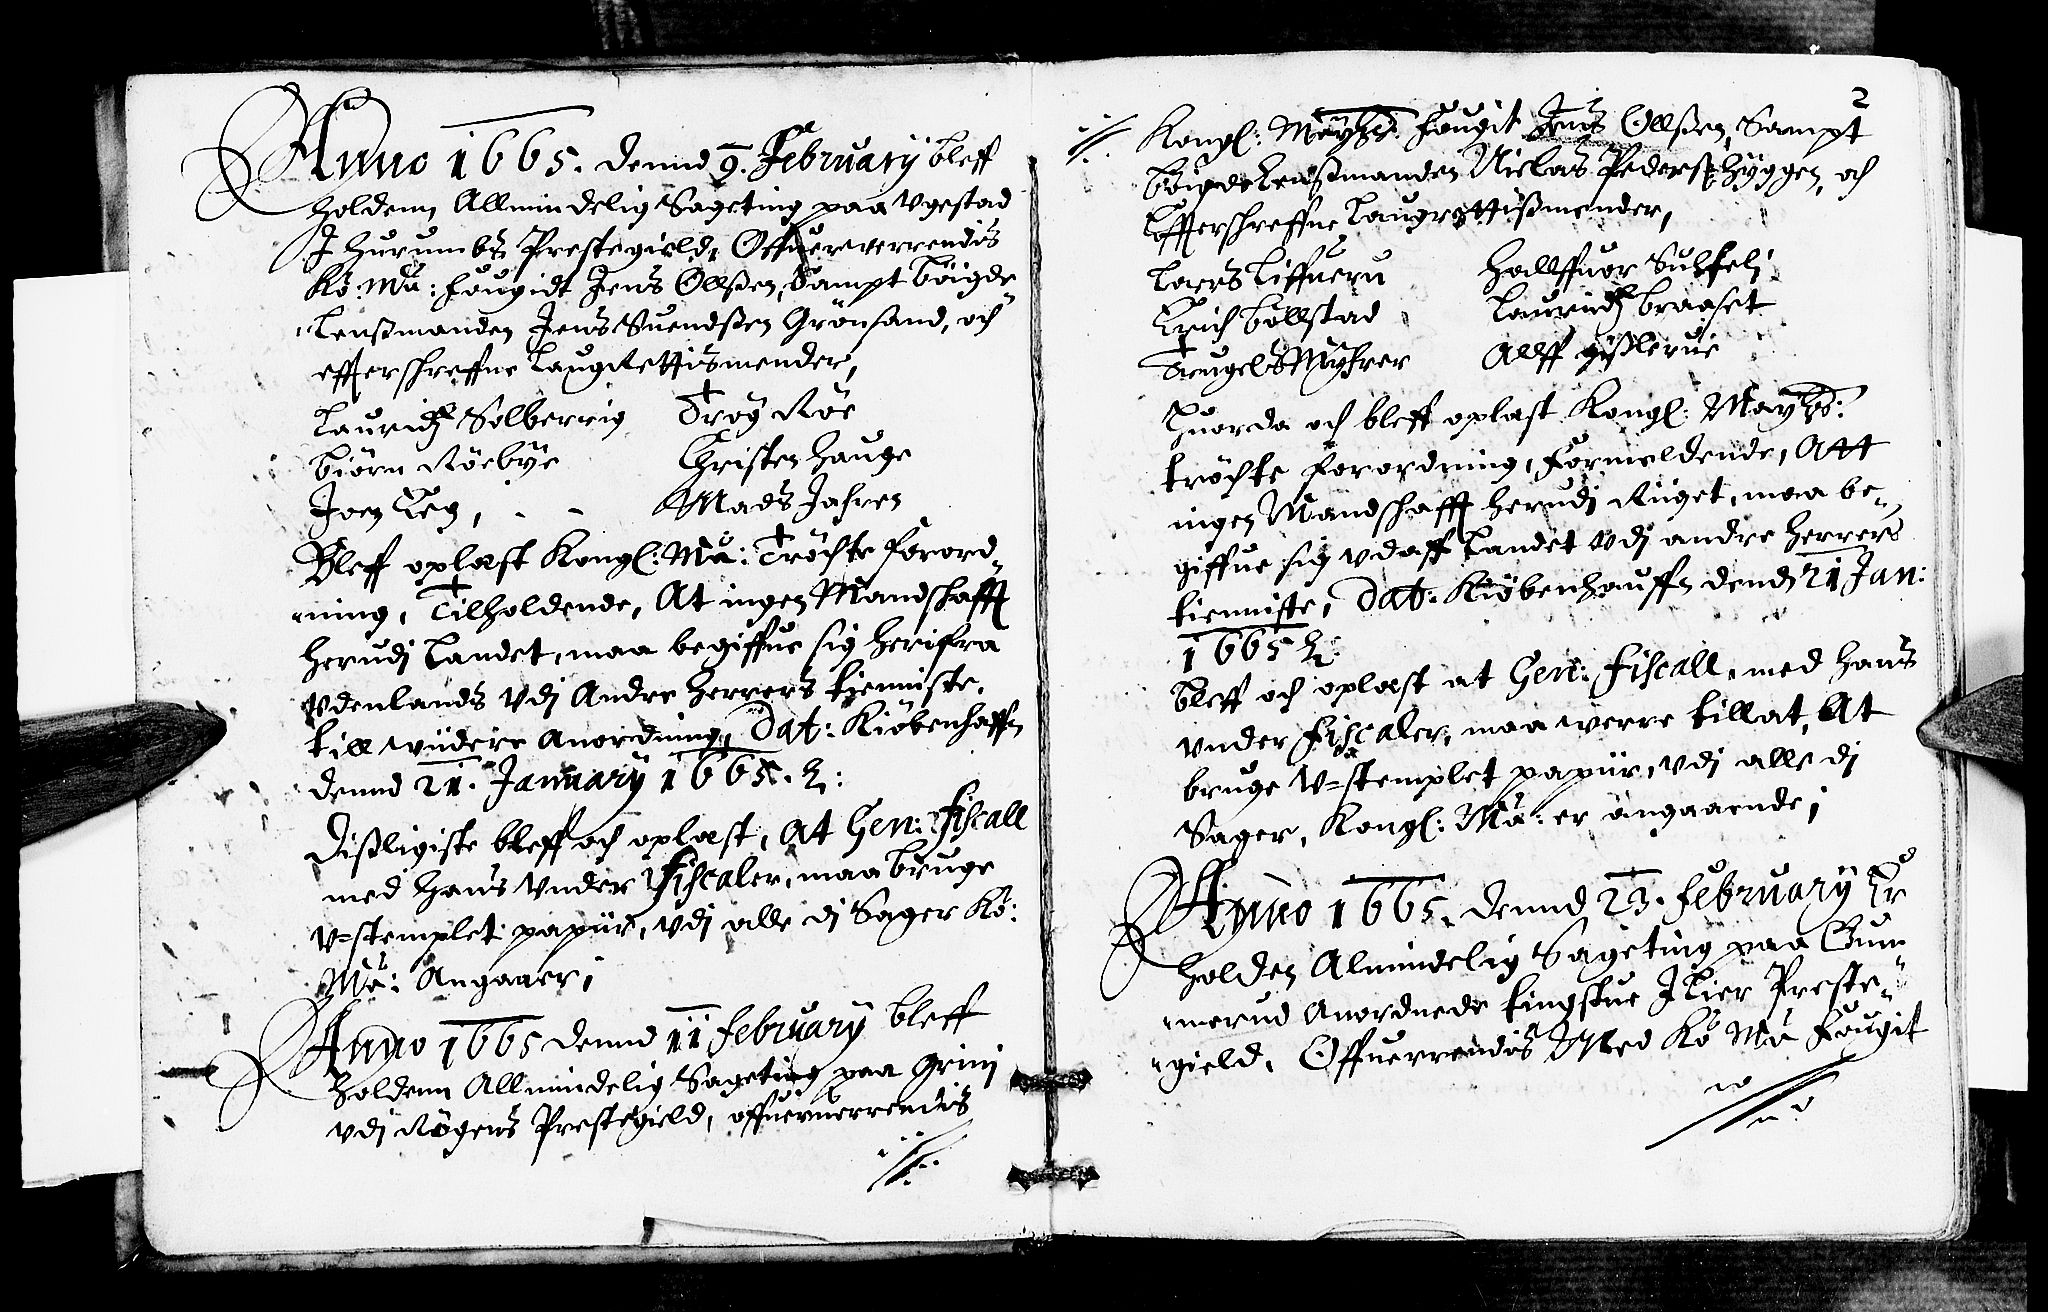 Anno 1665. dennd 9. February bleff
holdenn Allmindelig Sageting paa Vgestad
J Hurumbs Prestegield, Offuerverrendis
Kö: Mä: fougidt Jens Ollßen, Sampt böigde
Lenßmanden Jens Suendßen Grönsand, och
effterschreffne Laugrettismender,
Lauridz Solberrig
Trög Röe
Biörn Röebÿe
Christen Hauge
Joen Teg,
Mads Jahren
Bleff oplæst Kongl: Mä: Tröchte forord-
ning, Tilholdende, At ingen Mandschafft
herudj Landet, maa begiffue sig herifra
Vdenlands Vdj Andre Herrers tienniste,
till widere Anordning, Dat: Kiöbenhaffn
dennd 21. January 1665.
Dißligiste bleff och oplæst, At Gen: fiscall
med hans Vnder fiscaler, maa bruge
V-stemplet papiir, Vdj alle di Sager Kö:
Mä: Angaaer;
Anno 1665 dennd 11 february bleff
holdenn Allmindelig Sageting paa Grini
Vdj Rögens Prestegield, offuerverrendis
2
Kongl: Maytz: fougit Jens Ollßen, Sampt
böigde Lenßmanden Nielas Peders Hyggen, och
effterschreffne Laugrettißmender,
Laers Liffueru
Hallffuor
Erich bollstad
Lauridz braaset
Teugels Myhrer
Allff gißlerue
Huorda och bleff oplæst Kongl: Maytz:
tröchte forordning, Formeldende, Att
ingen Mandschafft herudj Riiget, maa be-
giffue sig vdaff Landet Vdj andre Herrers
tienniste, Dat: Kiöbenhauffn dend 21 Jan:
1665
bleff och oplæst at Gen: fiscall, med hans
vnder fiscaler, maa werre tillat, At
bruge V-stemplet papiir, vdj alle di
Sager, Kongl: Mä: er angaaende;
Anno 1665. dennd 23. february Er
holden Almindelig Sageting paa Gum-
merud Anordnede tingstue J Lier Preste-
gield, Offuerrendis Med Kö Mä Fougit